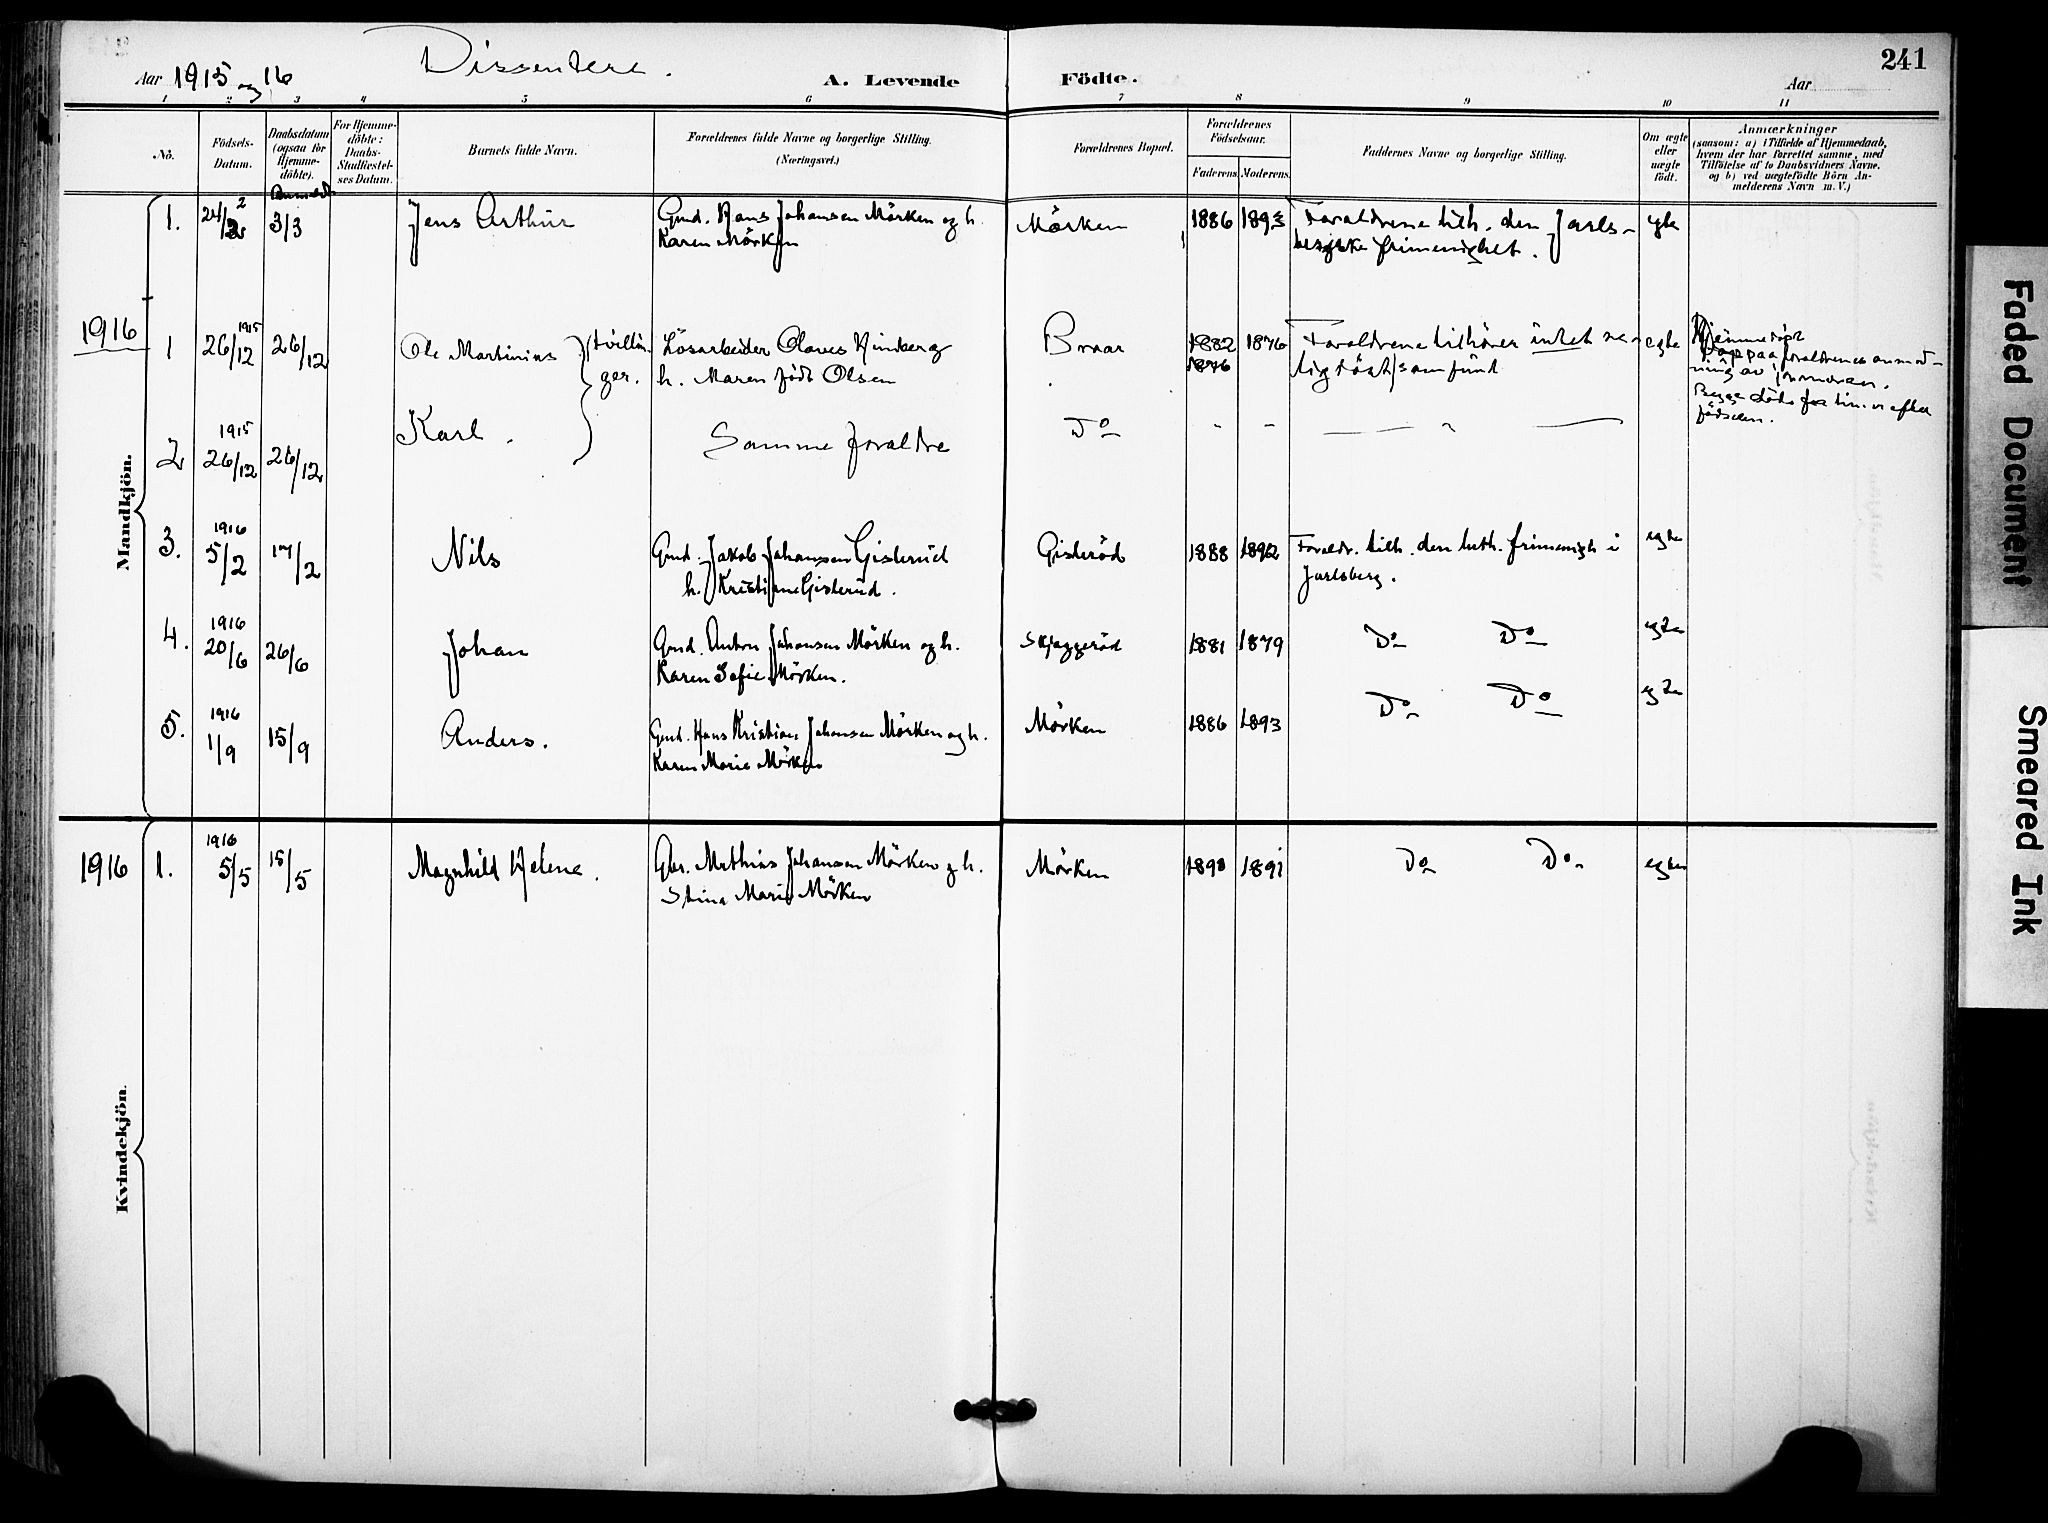 241
Aar 1915 og 16
Dissentere.
A. Levende Födte.
Aar
1 2 3 4 5 6 7 8 9 10 11
No.
Födsels-Datum.
Daabsdatum (ogsaa for Hjemme-döbte).
Anmeldt
For Hjemme-döbte: Daabs-Stadfæstel-ses Datum.
Barnets fulde Navn.
Forældrenes fulde Navne og borgerlige Stilling. (Næringsvei.)
Forældrenes Bopæl.
Forældrenes Födselsaar.
Faderens. Moderens.
Faddernes Navne og borgerlige Stilling.
Om ægte eller uægte födt.
Anmærkninger
(saasom: a) i Tilfælde af Hjemmedaab,
hvem der har forrettet samme, med
Tilföielse af to Daabsvidners Navne,
og b) ved uægtefödte Börn An-
melderens Navn m. V.)
Mandkjön.
1. 24/2 3/3 Jens Arthur Gmd. Hans Johansen Mörken og h. Mörken 1886 1893 Foraldrene tilh. den Jarls- egte
Karen Mörken bergske frimenighet.
1916
1 1915 26/12 26/12 Ole Martinius (tvillin- Lösarbeider Olaves Hinberg Braar 1882 1876 Foraldrene tilhörer intet re- egte Hjemmedöpt
ger. h. Maren födt Olsen 1876 ligiöst samfund paa foraldrenes anmod-
ning av jormoren.
Begge döde faa tim. efter
födselen.
2 1915 26/12 26/12 Karl. Samme foraldre Do - - — " —
3. 1916 5/2 17/2 Nils Gmd. Jakob Johansen Gisterud Gisteröd 1888 1892 Foraldr. tilh. den luth. frimenigh i egte
h. Kristiane Gisterud. Jarlsberg.
4. 1916 20/6 26/6 Johan Gmd. Anton Johansen Mörken og h. Skjaggeröd 1881 1879 Do Do egte
Karen Sofie Mörken.
5. 1916 1/9 15/9 Anders. Gmd. Hans Kristian Johansen Mörken og h. Mörken 1886 1893 Do Do egte
Karen Marie Mörken
Kvindekjön.
1916 1. 1916 5/5 15/5 Magnhild Helene. Gbr. Mathias Johansen Mörken og h. Mörken 1890 1891 Do Do egte
Stina Marie Mörken
Faded Document
Smeared Ink